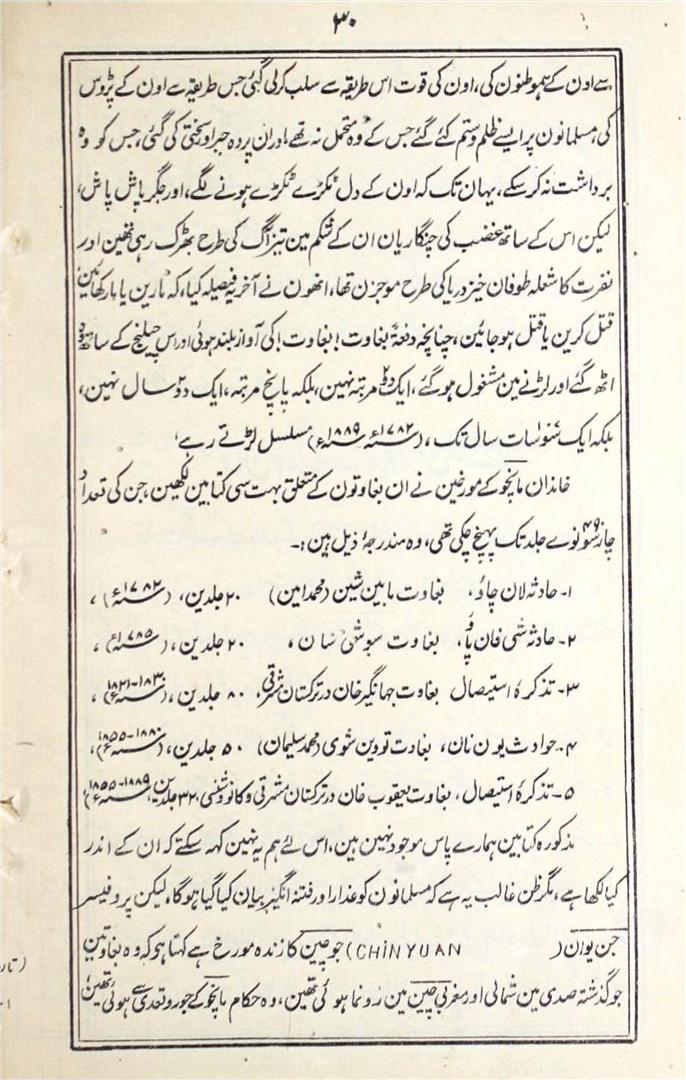 ۳۰
سے اون کے ہموطنون کی، اون کی قوت اس طریقہ سے سلب کرلی گئی جس طریقہ سے اون کے پڑوس
کی، مسلمانون پر ایسے ظلم و ستم کئے گئے جس کے وہ متحمل نہ تھے، اور ان پر وہ جبر اور سختی کی گئی، جس کو وہ
برداشت نہ کر سکے، یہان تک کہ اون کے دل ٹکڑے ٹکڑے ہونے لگے، اور جگر پاش پاش،
لیکن اس کے ساتھ غضب کی چنگاریان ان کے شکم مین تیز آگ کی طرح بھڑک رہی تھین اور
نفرت کا شعلہ طوفان خیز دریا کی طرح موجزن تھا، انھون نے آخر یہ فیصلہ کیا، کہ مارین یا مار کھائین
قتل کرین یا قتل ہو جائین، چنانچہ دفعۃً بغاوت! بغاوت! کی آواز بلند ہوئی اور اس چیلنج کے ساتھ وہ
اٹھ گئے اور لڑنے مین مشغول ہو گئے، ایک دو ۲ مرتبہ نہین، بلکہ پانچ مرتبہ، ایک دو ۲ سال نہین،
بلکہ ایک سو سات سال تک، (۱۷۸۲ء ۱۸۸۹ء) مسلسل لڑتے رہے،
خاندان مانچو کے مورخین نے ان بغاوتون کے متعلق بہت سی کتابین لکھین، جن کی تعداد
چار سو نوے ۴۹۰ جلد تک پہنچ چکی تھی، وہ مندرجۂ ذیل ہین:۔
۱۔ حادثہ لان چاؤ، بغاوت مابین شین (محمد امین) ۲۰ جلدین، (۱۷۸۲ء)،
۲۔ حادثہ شی فان پاؤ، بغاوت سوشی سان، ۲۰ جلدین، (۱۷۸۵ء)،
۳۔ تذکرۂ استیصال بغاوت جہانگیر خان در ترکستان مشرقی، ۸۰ جلدین، (۱۸۳۰-۱۸۲۱ء)،
۴۔ حوادث یون نان، بغاوت تووین شوی (محمد سلیمان) ۵۰ جلدین، (۱۸۸۰-۱۸۵۵ء)،
۵۔ تذکرۂ استیصال، بغاوت یعقوب خان در ترکستان مشرقی و کانسو و شنسی، ۳۲۰ جلدین، (۱۸۸۹-۱۸۵۵ء)
مذکورہ کتابین ہمارے پاس موجود نہین ہین، اس لئے ہم یہ نہین کہہ سکتے کہ ان کے اندر
کیا لکھا ہے، مگر ظن غالب یہ ہے کہ مسلمانون کو غدار اور فتنہ انگیز بیان کیا گیا ہوگا، لیکن پروفیسر
جن یوان (CHIN YUAN) جو چین کا زندہ مورخ ہے کہتا ہو کہ وہ بغاوتین
جو گذشتہ صدی مین شمالی اور مغربی چین مین رونما ہوئی تھین، وہ حکام مانچو کے جور و تعدی سے ہوئی تھین،